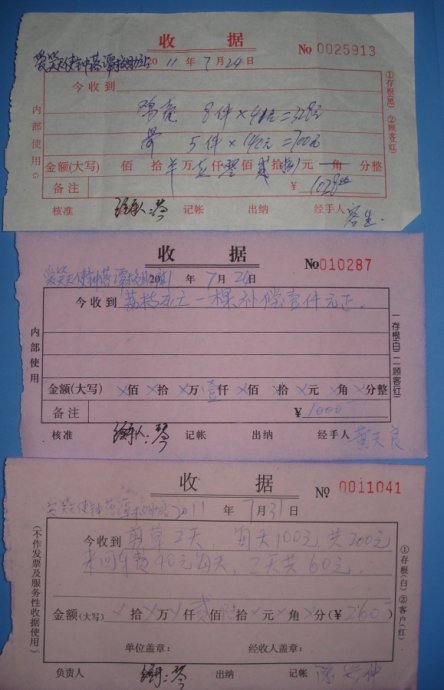 收据
No 0025913
2011年7月24日
今收到
8件×41元=328元
5件×140元=700元
金额(大写) 佰 拾 万 仟 佰 拾 元 角 分整
备注 ¥ 1028
核准 经手人:琴 记帐 出纳 经手人
内部使用
①存根(黑) ②顾客(红)
收据
No 010287
年7月26日
今收到 荔枝死亡一棵补偿壹仟元正.
金额(大写) ×佰×拾×万壹仟×佰×拾×元×角×分整
备注 ¥ 1000
核准 经手人:琴 记帐 出纳 经手人 黄天良
内部使用
一存根(白) 二顾客(红)
收据
No 0011041
2011年7月31日
今收到 剪草2天、每天100元,共200元
来回车费30元每天、2天共60元.
金额(大写) 拾 万 仟 贰佰 拾 元 角 分(¥ 260 )
单位盖章: 经收人盖章:
负责人 经手:琴 出纳 记帐
(不作发票及服务性收据使用)
①存根(白) ②客户(红)